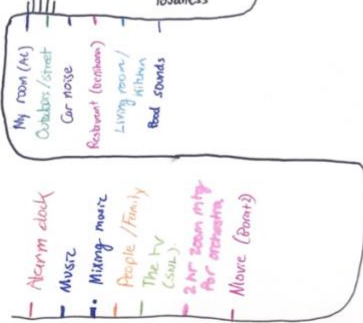 My room (AC)
Outdoors/street
Car noise
Restaurant (Benihana)
Living room/
Kitchen
Food sounds
Alarm clock
Music
Mixing music
People/Family
The tv
(SNL)
2 hr zoom mtg
for orchestra
Movie (Borat 2)